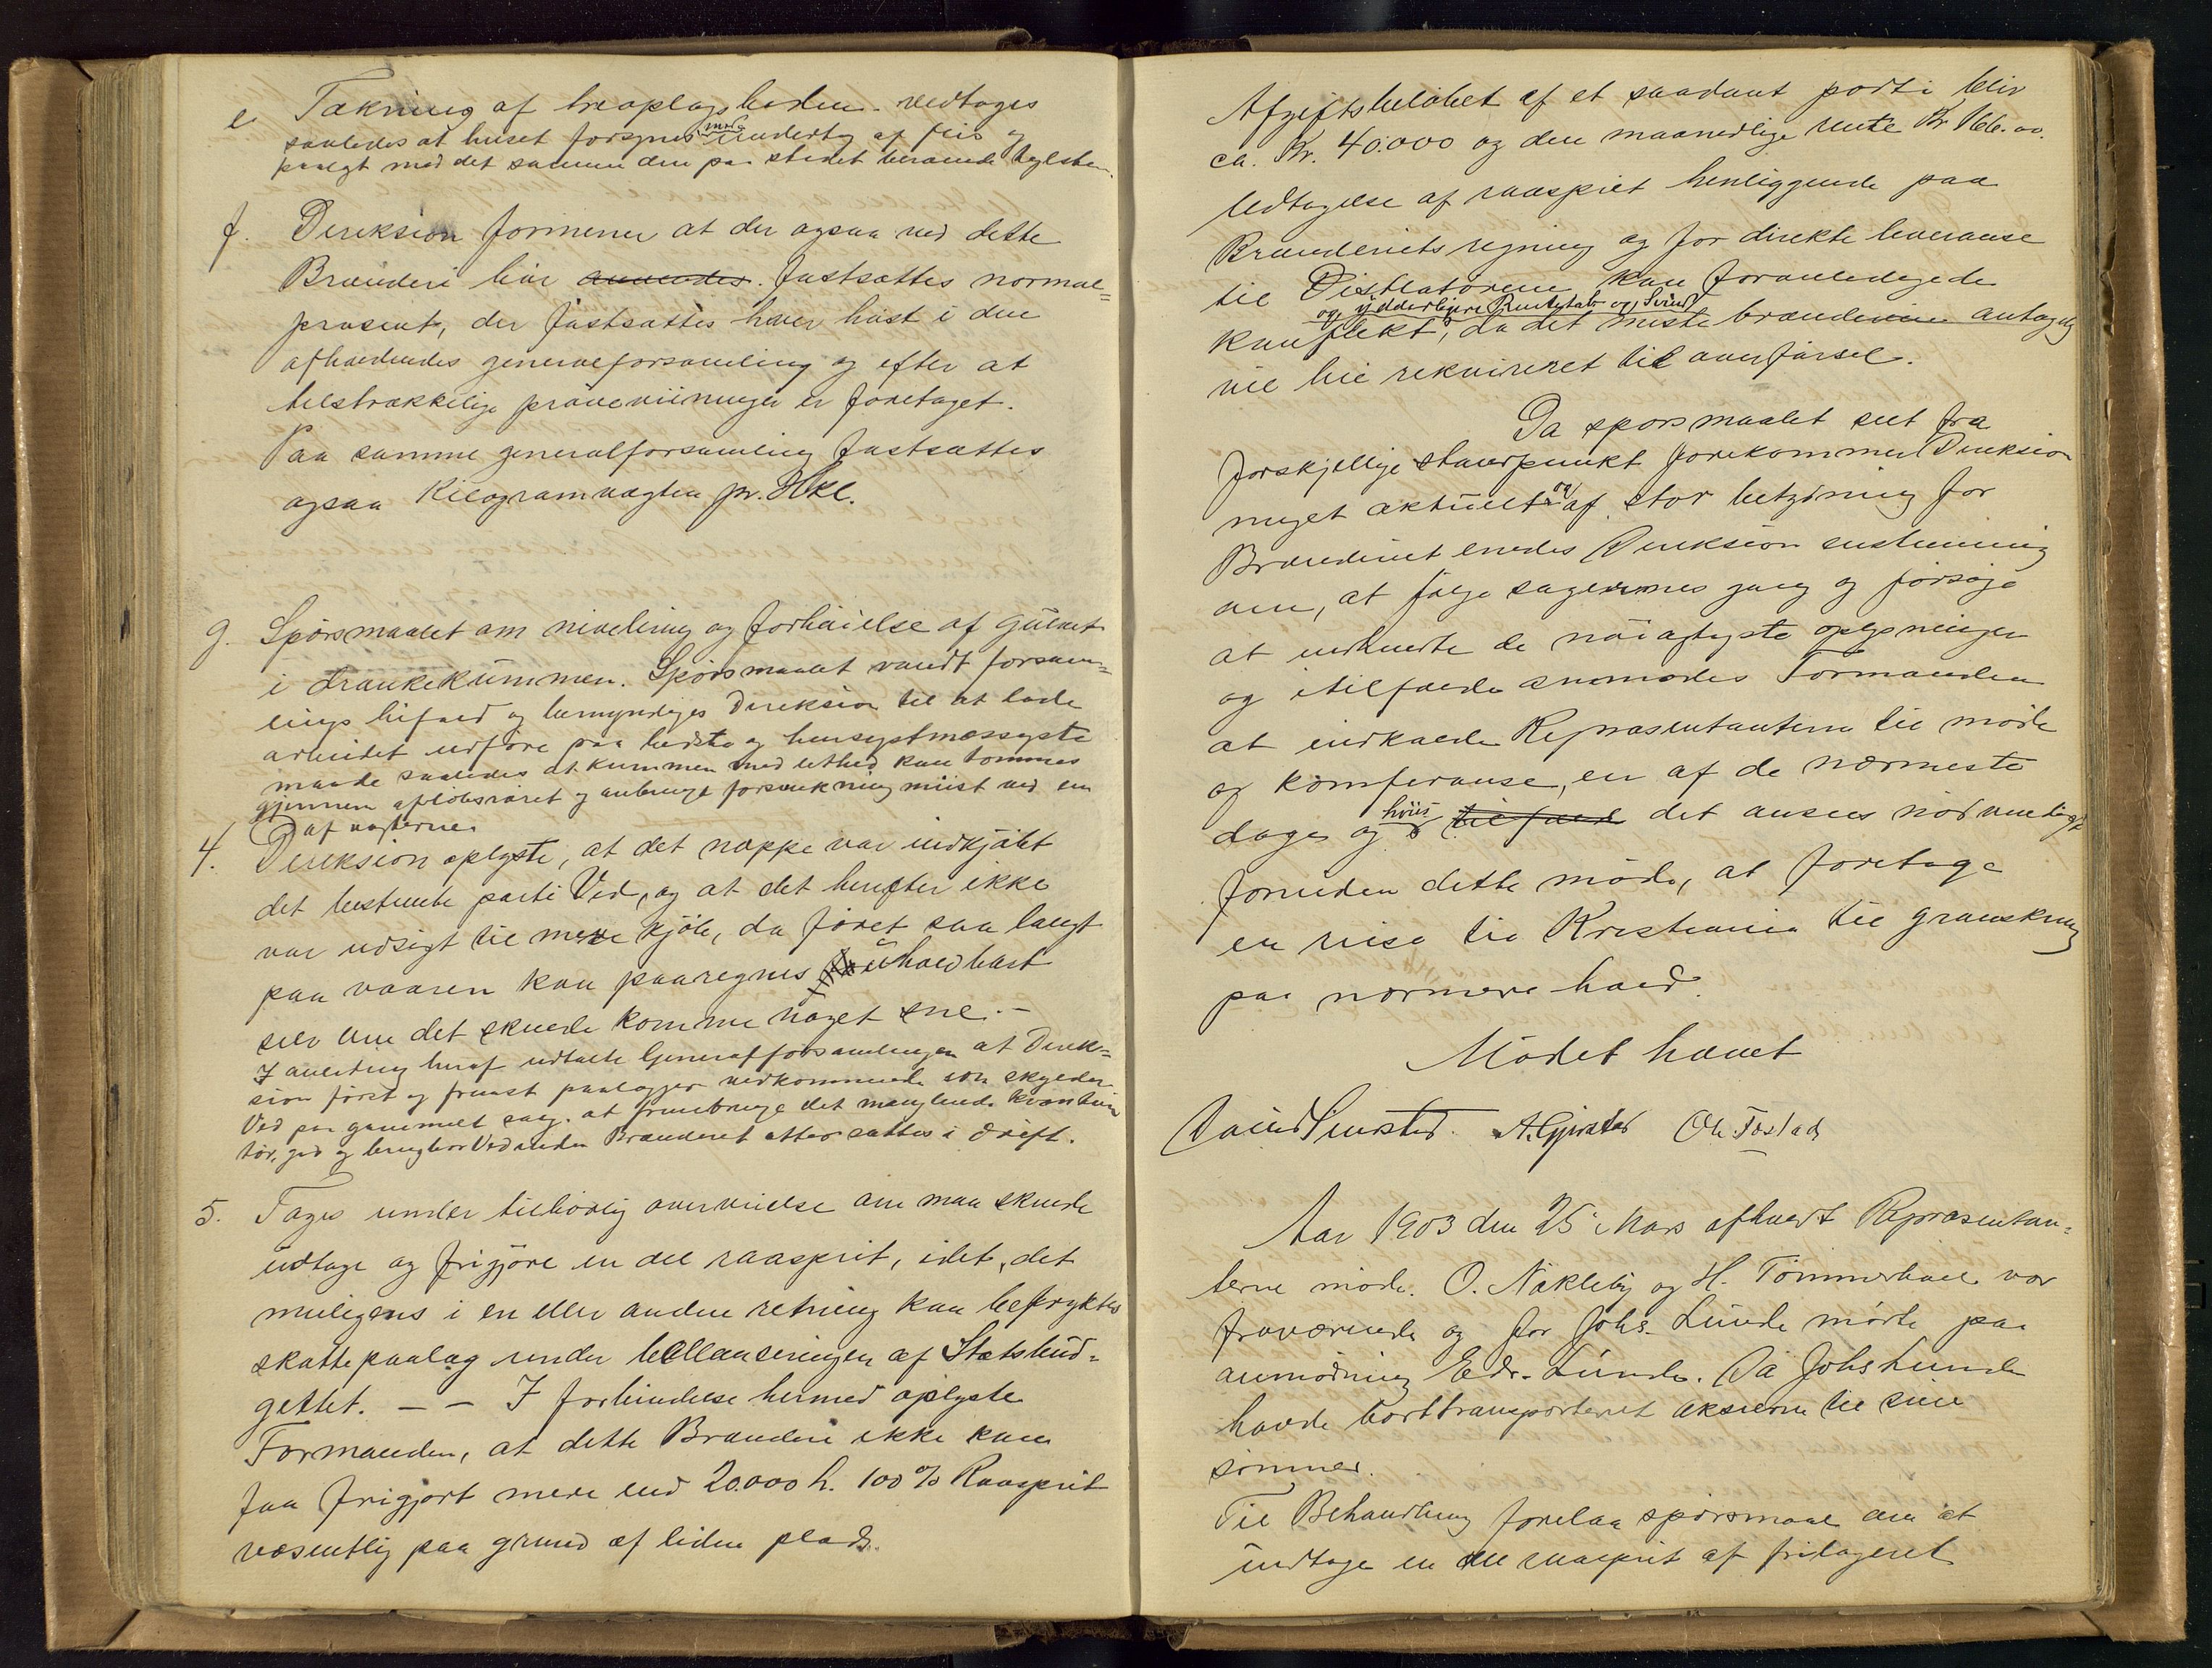 e. Tækning af træoplagsboden. vedtages
saaledes at huset forsynes med undertag af flis og
paalagt med det samme den paa stedet værende teglsten.
f. Direksion formener at der ogsaa ved dette
Brænderi bør anvendes. fastsættes normal=
prosent, der fastsættes hver høst i den
afholdendes generalforsamling og efter at
tilstrækkelige prøveveininger er foretaget.
Paa samme generalforsamling fastsættes
ogsaa Kilogramvægten pr. Hkl.
g. Spörsmaalet om nivelering og forhöielse af gulvet
i drankekummen. Spörsmaalet vandt forsam=
lings bifald og bemyndiges Direksion til at lade
arbeidet udföre paa bedste og hensigtmæssigste
maade saaledes at kummen med lethed kan tömmes
gjennem aflöbsröret og anbringe forsænkning midst ved en
af væggerne.
4. Direksion oplyste, at det næppe var indkjöbt
det bestemte parti Ved, og at det herefter ikke
var udsigt til mere kjöb, da föret saa langt
paa vaaren kan paaregnes uholdbart
selv om det skulde komme noget sne. –
I anledning heraf udtalte Generalforsamlingen at Direk=
sion först og fremst paalægger vedkommende som skylder
Ved paa gammelt salg. at frembringe det manglende kvantum
tör, god og brugbar Ved inden Brænderiet atter sættes i drift.
5. Toges under tilbörlig overveielse om man skulde
udtage og frigjöre en del raasprit, idet, det
muligens i en eller anden retning kan befryktes
skattepaalæg under ballanseringen af Statsbud=
gettet. – – I forbindelse hermed oplyste
Formanden, at dette Brænderi ikke kan
faa frigjort mere end 20.000 l. 100% Raasprit
væsentlig paa grund af liden plads.
Afgiftsbelöbet af et saadant parti bliv
ca. Kr. 40.000 og den maanedlige rente Kr. 166.00.
Udtagelse af raasprit henliggende paa
Brænderiets regning og for direkte leveranse
til Distlatörene kan foranledigede
og ydderligere Rentetab og Svind
konflekt, da det meste brændevin antagelig
vil blie rekvireret til overförsel.
Da sporsmaalet set fra
forskjellige standpunkt forekommer Direksion
meget aktuelt og af stor betydning for
Brænderiet enedes Direksion enstemmig
om, at fölge sagernes gang og forsöge
at indhente de nöiagtigste oplysninger
og itilfælde anmodes Formanden
at indkalde Repræsentanterne til möde
og komferanse, en af de nærmeste
dage og hvis i tilfæld det ansees nödvendigt
foruden dette möde, at foretage
en reise til Kristiania til granskning
paa nærmere hold.
Mödet hævet
A. Gjestad Ole Fostad
Aar 1903 den 25 Mars afholdt Repræsentan=
terne möde. O. Nökleby og H. Tömmerhol var
fraværende og for Johs. Lunde mödte paa
anmodning Edv. Lunde. Da Johs Lunde
havde borttransporteret aksierne til sine
sönner.
Til Behandling forelaa spörsmaal om at
undtage en del raasprit af frilageret